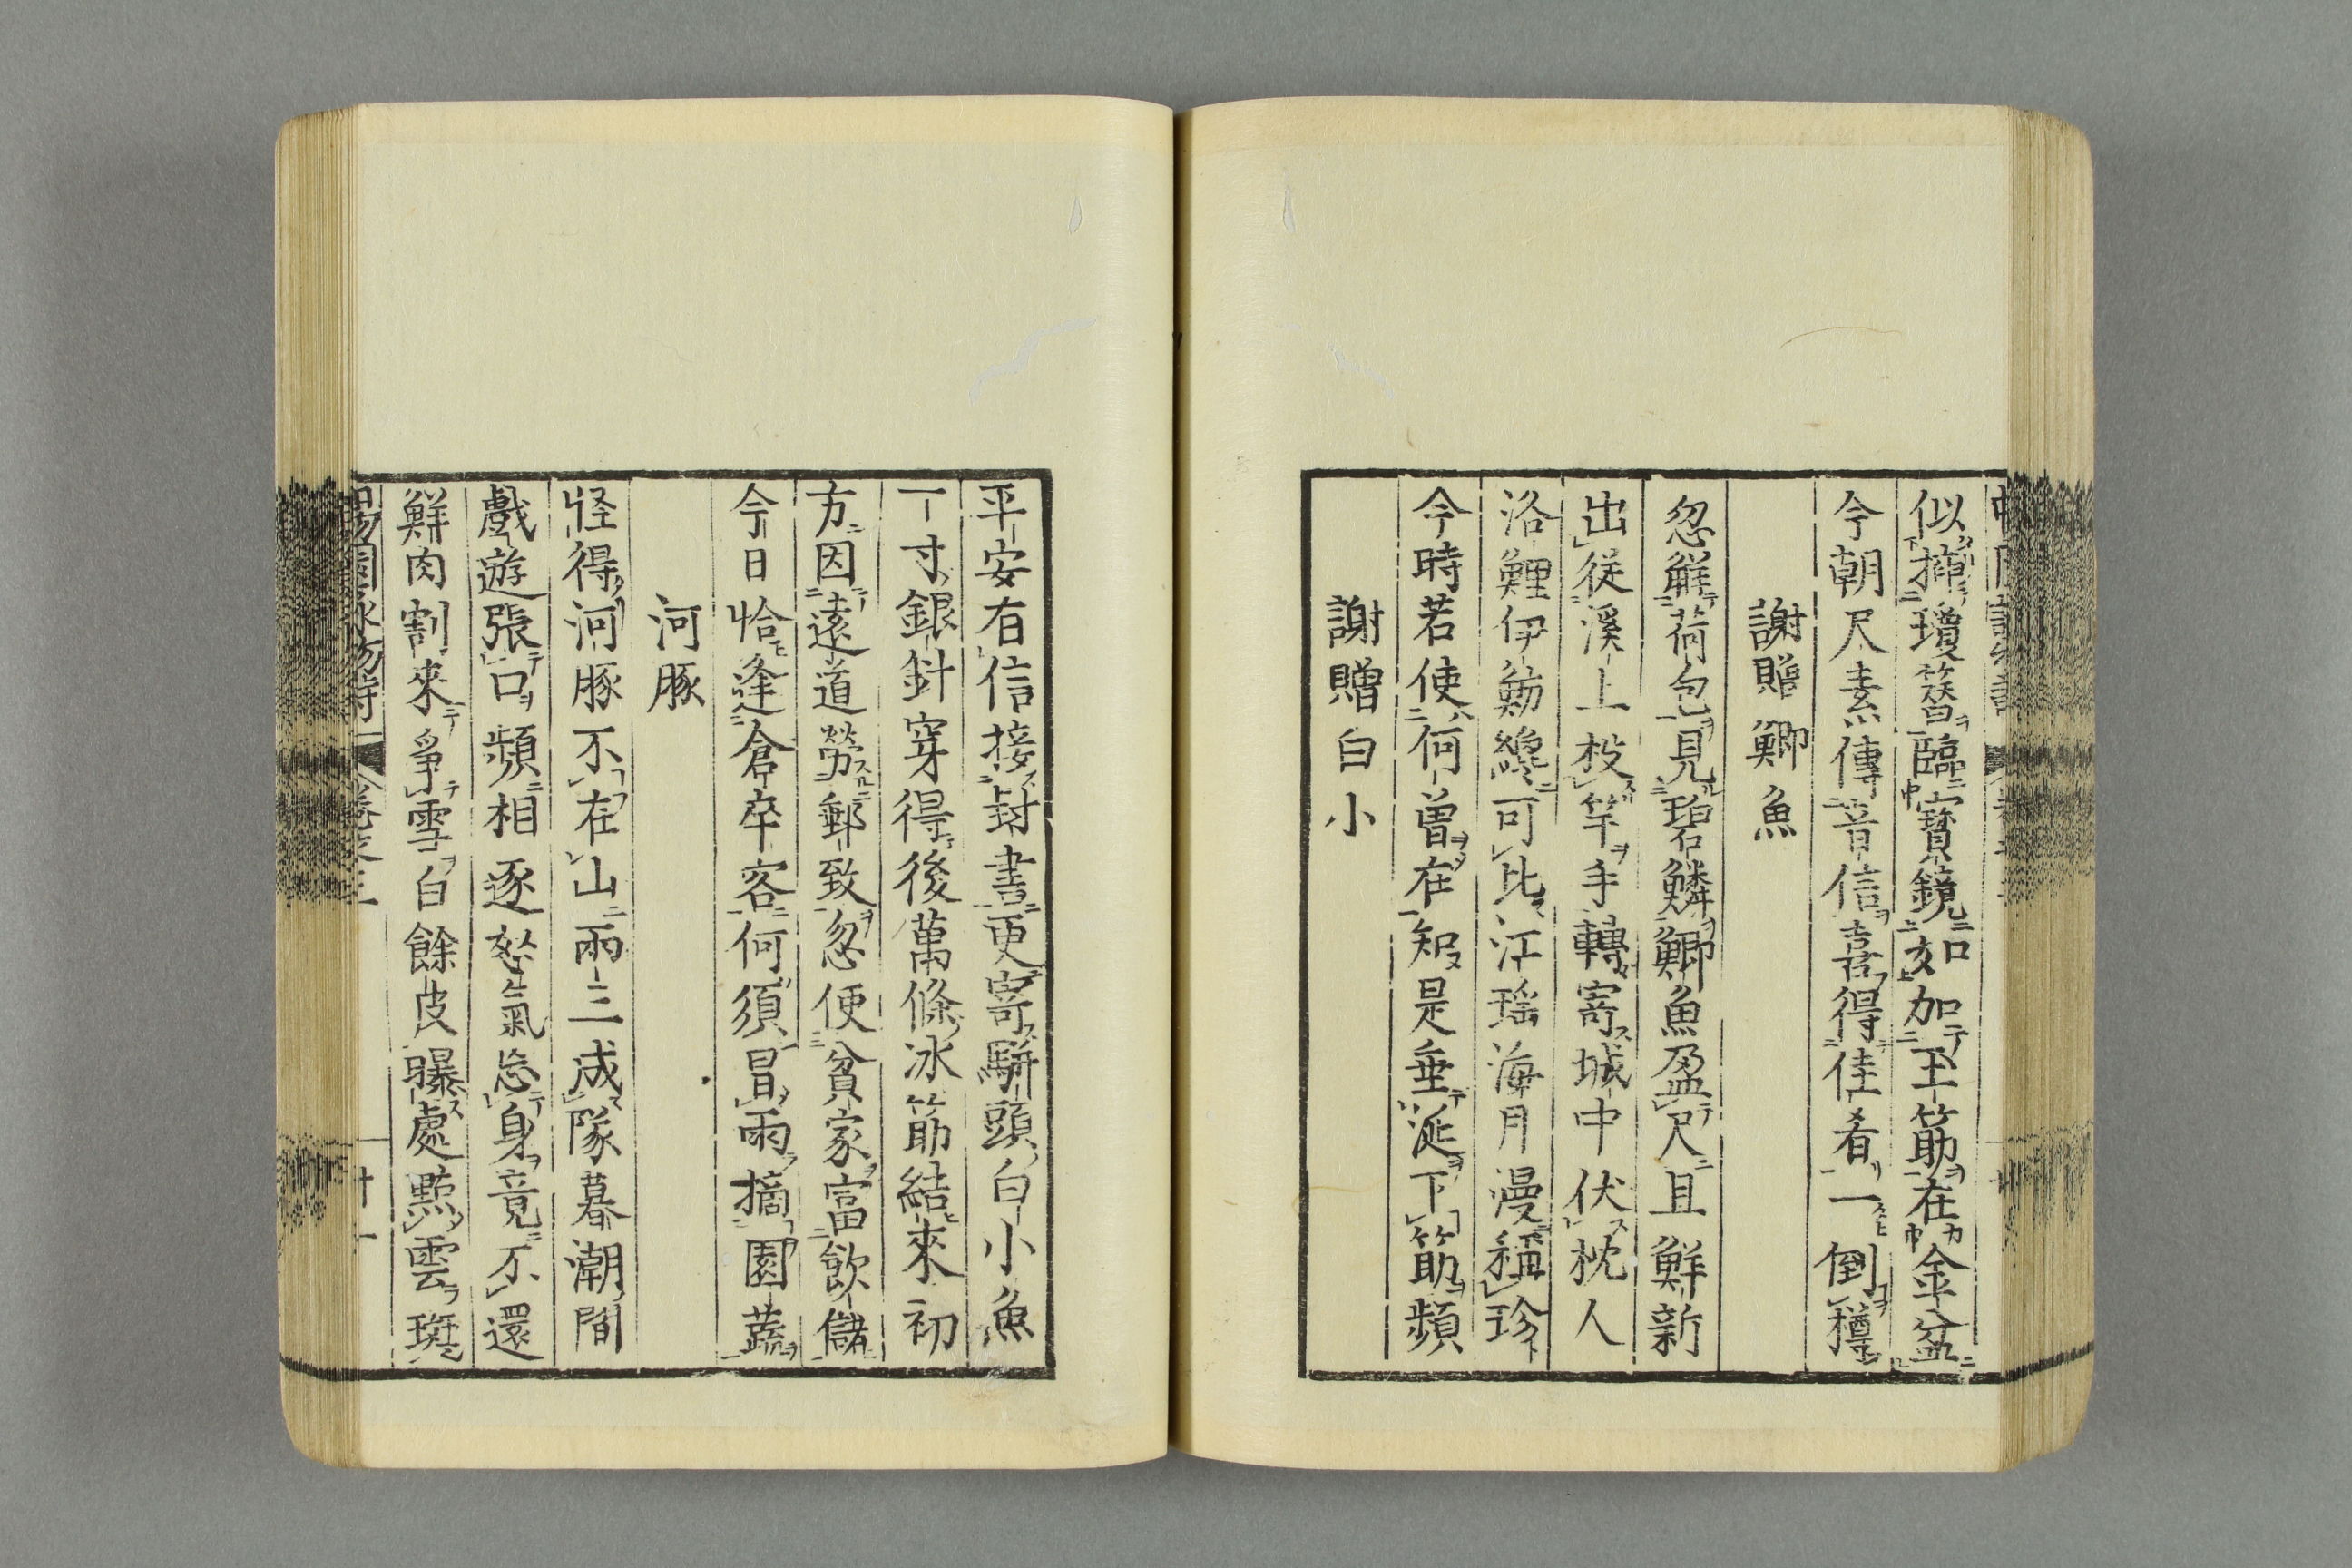 似擶瓊簪臨寶鏡如加玉筯在金盆
今朝尺素傳音信喜得佳肴一倒樽
謝贈鯽魚
忽解荷包見碧鱗鯽魚盈尺且鮮新
出従溪上投竿手轉寄城中伏枕人
洛鯉伊魴纔可比江瑶海月漫稱珍
今時若使何曽在知是垂涎下筯頻
謝贈白小
平安有信接封書更寄駢頭白小魚
一寸銀針穿得後萬條冰筯結來初
方因遠道勞郵致忽便貧家富飲儲
今日恰逢倉卒客何須冒雨摘園蔬
河豚
怪得河豚不在山兩三成隊暮潮間
戲遊張口頻相逐怒氣忘身竟不還
鮮肉割來爭雪白餘皮曝處黦雲斑